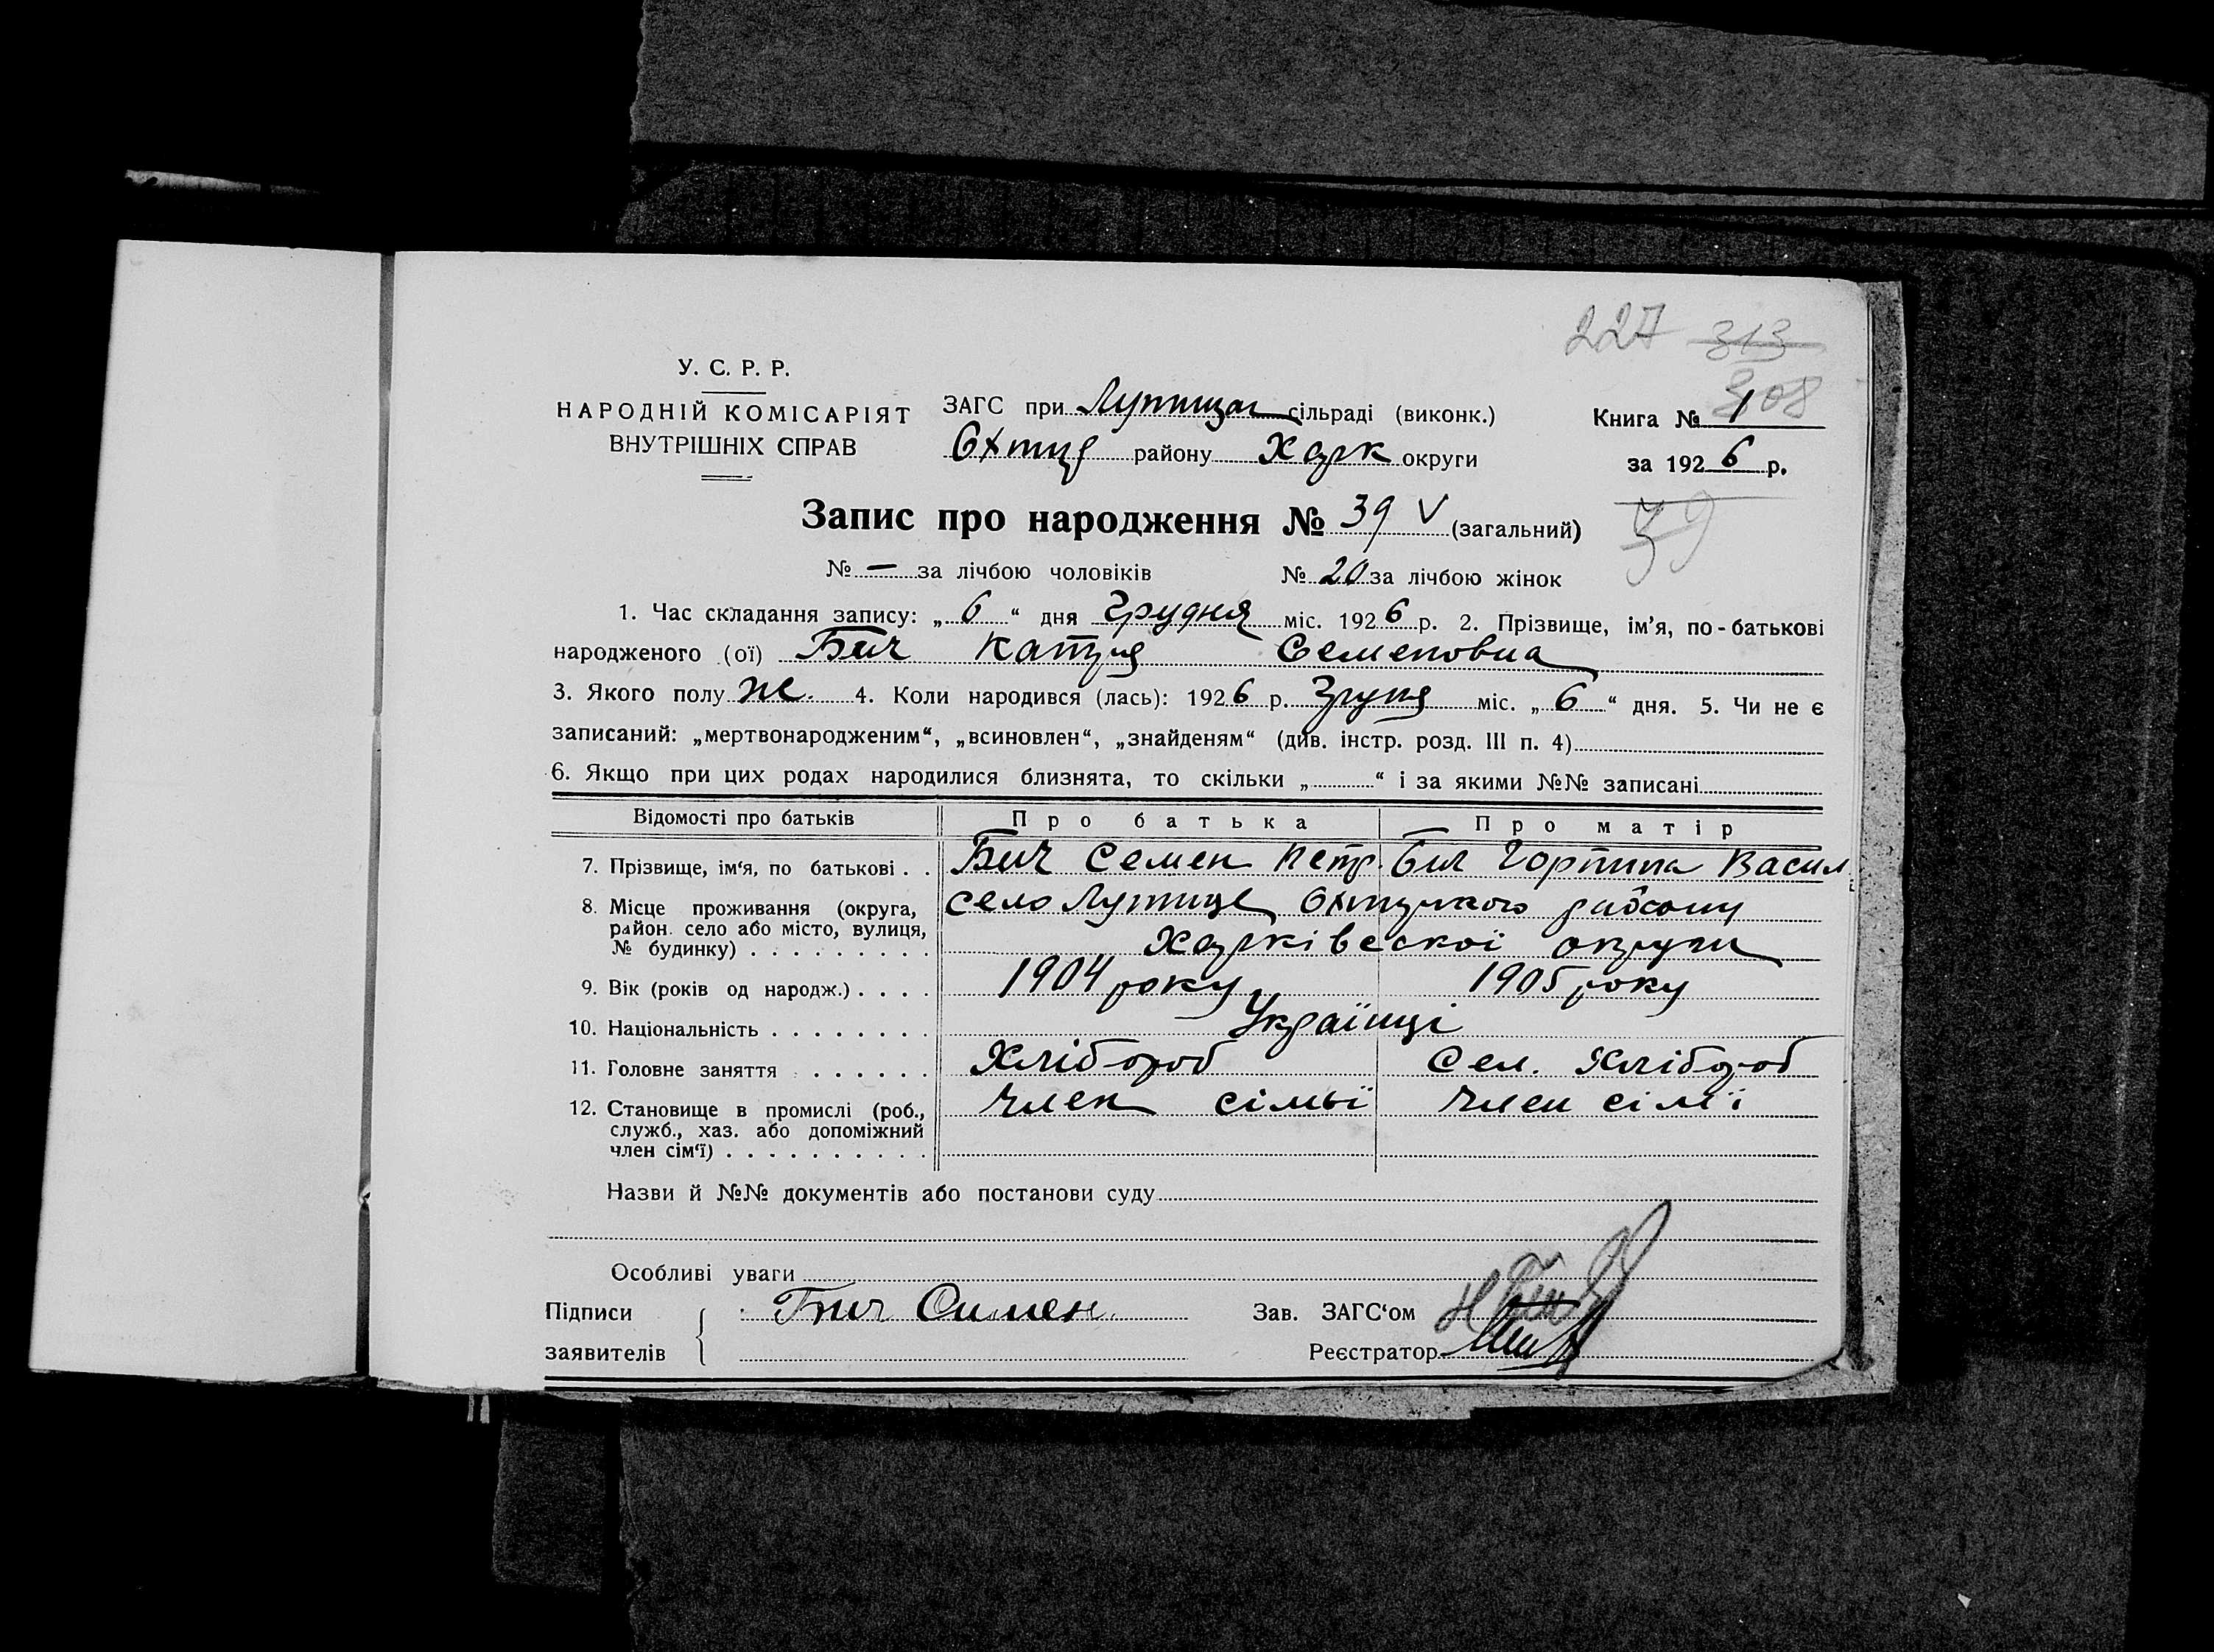 227 313
308
У. С. Р. Р.
НАРОДНІЙ КОМІСАРІЯТ
ВНУТРІШНІХ СПРАВ
ЗАГС при Лутищан сільраді (виконк.)
Охтир району Харк округи
Книга № 1
за 1926 р.
Запис про народження № 39 V (загальний)
39
№ — за лічбою чоловіків № 20 за лічбою жінок
1. Час складання запису: „ 6 “ дня Грудня міс. 1926 р. 2. Прізвище, ім’я, по-батькові
народженого (ої) Бич Катря Семеновна
3. Якого полу ж. 4. Коли народився (лась): 1926 р. міс. „ 6 “ дня. 5. Чи не є
записаний: „мертвонародженим“, „всиновлен“, „знайденям“ (див. інстр. розд. III п. 4)
6. Якщо при цих родах народилися близнята, то скільки „ “ і за якими №№ записані
Відомості про батьків Про батька Про матір
7. Прізвище, ім‘я, по батькові . . Бич Семен Петр. Бич Гортина Васил
8. Місце проживання (округа, село Лутище Охтирського району
район. село або місто, вулиця,
№ будинку) . . . . . . . . . Харківської округи
9. Вік (років од народж.) . . . . 1904 року 1905 року
10. Національність . . . . . . . . Українці
11. Головне заняття . . . . . . Хлібороб Сел. Хлібороб
12. Становище в промислі (роб., Член сімьї Член сім'ї
служб., хаз. або допоміжний
член сім‘ї) . . . . . . . . . .
Назви й №№ документів або постанови суду
Особливі уваги
Підписи Бич Симен Зав. ЗАГС‘ом
заявителів Реєстратор